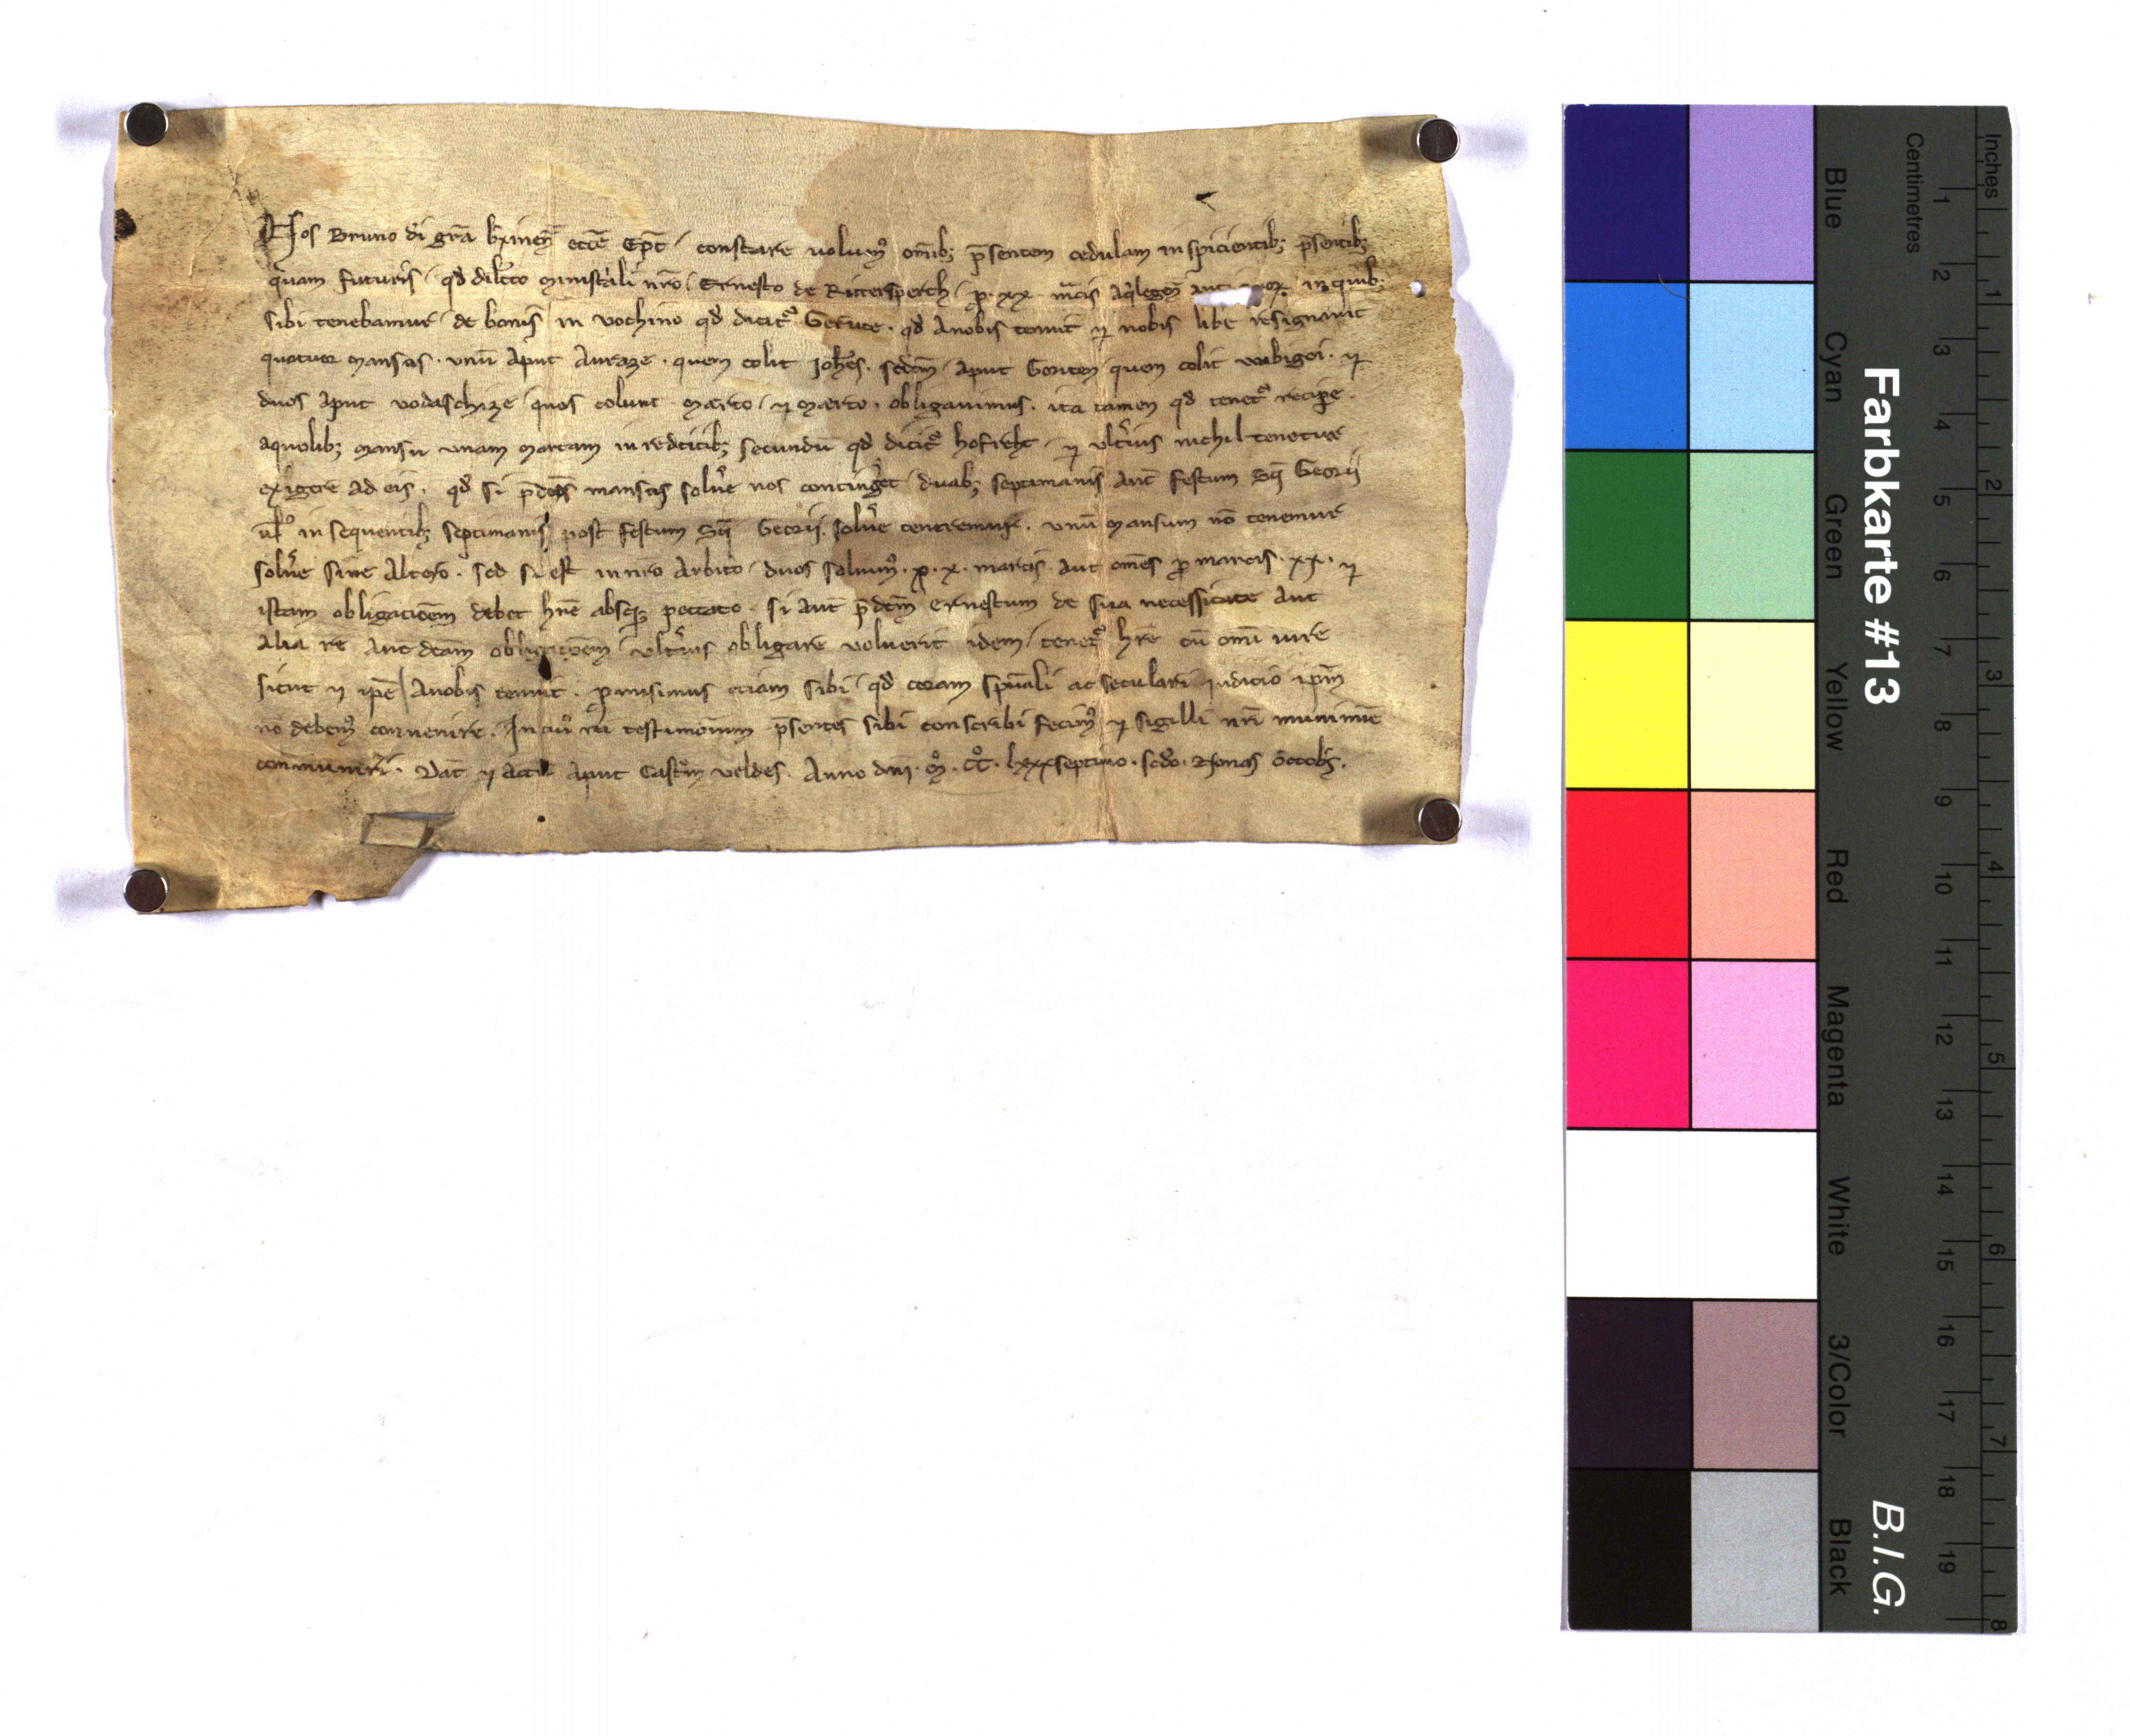 Nos Bruno di gra brixineñ eccẽ Epc̃ / constare uolum9 omĩb; p̃sentem cedulam inspicientib; p̃sentib;
quam futuris / qd̃ dilc̃o ministͣli nr̃o / Ernesto de Rittersperch / p̱ · xx m̃cis Aq̃legeñ in quib;
sibi tenebamur / de bonis / in vochino qd̃ dicit᷑ Gerute · qd̃ Anobis tenuit ⁊ nobis libe resignauit
quatuor mansos · vnũ Aput Auraze · quem colit Joh̃es · scd̃m / Aput Goriten quem colit · ⁊
duos Aput vodaschize / quos colunt marto / ⁊ marto · obligauimus · ita tamen qd̃ tenet᷑ recip̱e ·
aquolib; mansu vnam marcam in redditib; secundũ qd̃ dicit᷑ hofreht / ⁊ vlt̃ius nichil tenetur
exigere ad eis · qd̃ si p̃dc̃os mansos solũe nos conting̃et / duab; septimanis ant̃ festum Sc̃i Georii
ul̃ in sequentib; septimanis post festum Sc̃i Georii · solũe teneremur · vnũ mansum nõ tenemur
solũe sine Altero · sed si est in nr̃o Arbit̃o / duos soluim9 · p̱ · x · marcis · aut om̃es p̱ marcis · xx · ⁊
istam obligacõem debet hr̃e absq̱ peccato · si aut̃ p̃dc̃m Ernestum de sua necessitate Aut
Alia re Aut dc̃am obligacõem / vlt̃ius obligare voluerit idem / tenet᷑ hr̃e cũ omĩ iure
sicut ⁊ ip̃e / Anobis tenuit · p̱misimus etiam sibi / qd̃ coram sp̃uali ac seculari iudicio ip̃m
no debem9 conuenire · In cui9 rei testimonium p̃sentes sibi conscribi fecim9 ⁊ sigilli nr̃i munimĩe
communiri · Dat̃ ⁊ Act̃ Aput Castrũm veldes · Anno dnĩ · M̊ · CC̊ · lxxxseptimo · scd̃o · Nonas Octobr̃ ·
Farbkarte #13
B.I.G.
Inches
1 2 3 4 5 6 7 8
Centimetres
1 2 3 4 5 6 7 8 9 10 11 12 13 14 15 16 17 18 19
Blue
Cyan
Green
Yellow
Red
Magenta
White
3/Color
Black